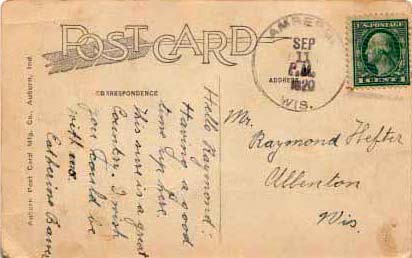 POST CARD
AMBERG
SEP
11
P.M.
1920
WIS.
U.S. POSTAGE
1 CENT 1
CORRESPONDENCE
ADDRESS
Auburn Post Card Mfg. Co., Auburn, Ind.
Hello Raymond:
Having a good
time up here.
This sure is a great
Country. I wish
you could be
with us.
Catherine
Mr.
Raymond Hefter
Allenton
Wis.